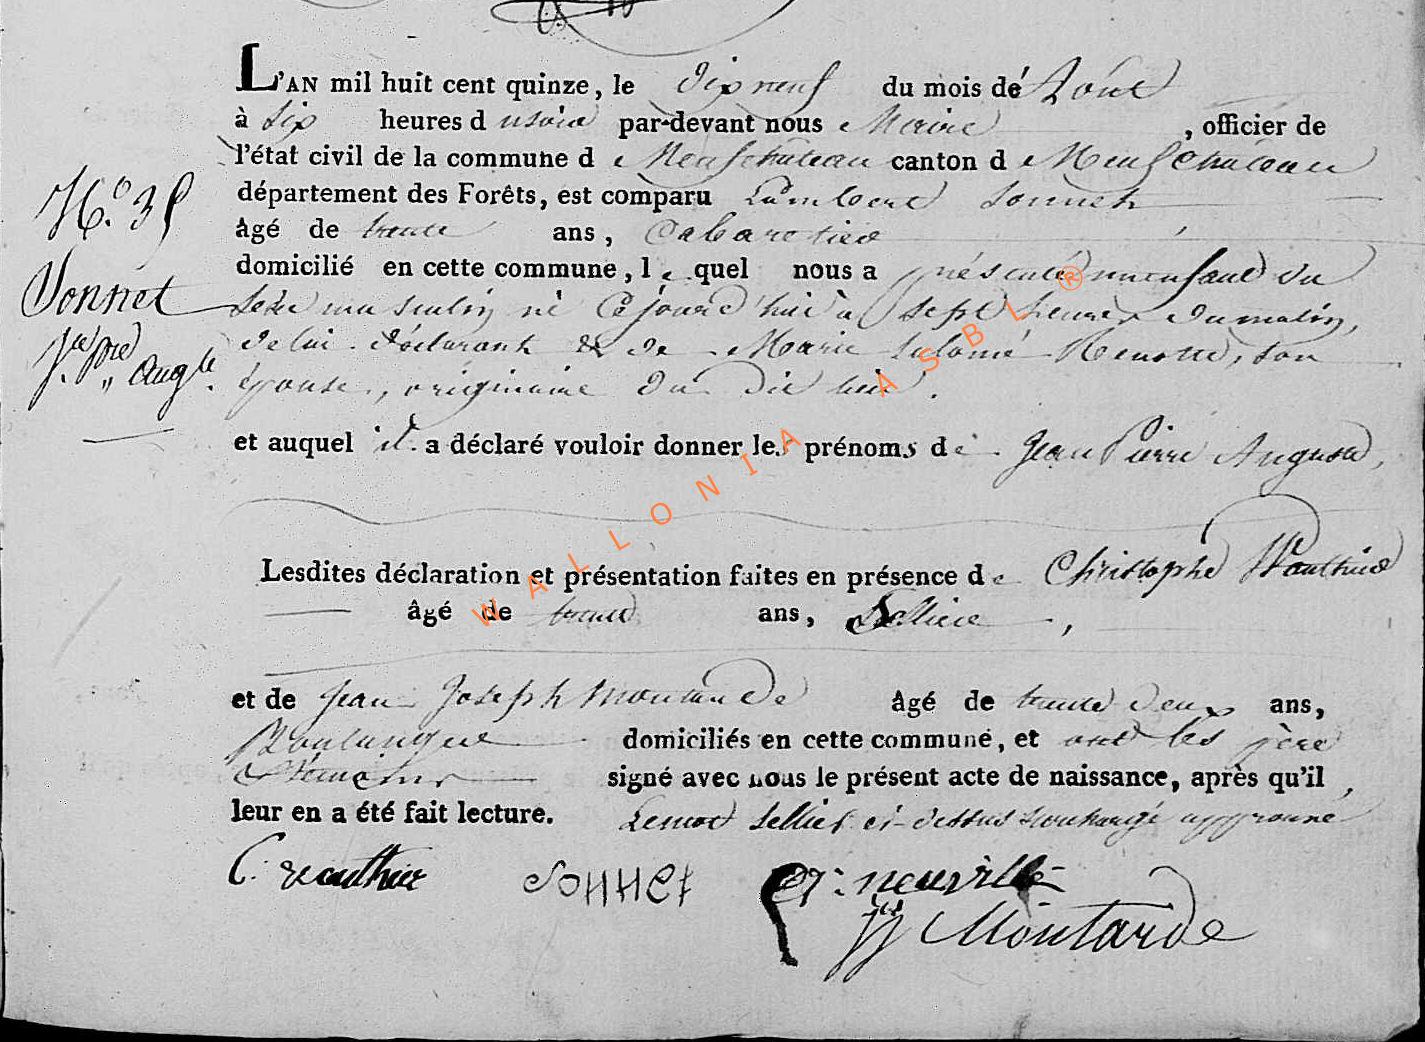 L'AN mil huit cent quinze, le dix neuf du mois de Août
à six heures d u soir par-devant nous Maire , officier de
l'état civil de la commune d e Neufchateau canton d e Neufchateau
département des Forêts, est comparu Lambert Sonnet
âgé de trente ans, Cabaretier
domicilié en cette commune, l e quel nous a présenté un enfant du
sexe masculin né Cejourd'hui à sept heures du matin,
de lui déclarant & de Marie Salomé son
épouse, originaire du dit lieu.
et auquel il a déclaré vouloir donner les prénoms de Jean Pierre August,
N.° 35
Sonnet
J.n p.re
Aug.te
Lesdites déclaration et présentation faites en présence de Christophe Wauthier
âgé de trente ans, Sellier ,
et de Jean Joseph Moutarde âgé de trente deux ans,
Boulanger domiciliés en cette commune, et ont les père
& témoins signé avec nous le présent acte de naissance, après qu'il
leur en a été fait lecture. Le mot sellier ci-dessus surchargé approuvé
C. Wauthier Sonnet neuville
JJ Moutarde
WALLONIA ASBL ®